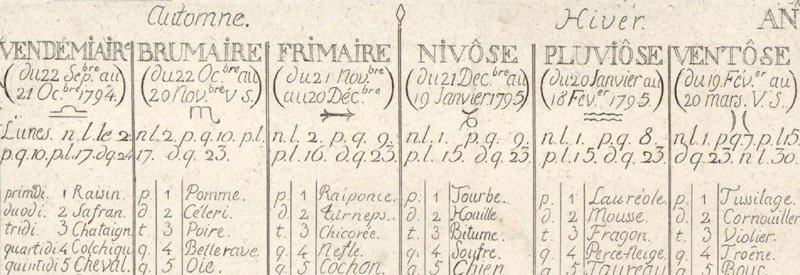 Automne. Hiver. AN
VENDÉMIAIRE BRUMAIRE FRIMAIRE NIVÔSE PLUVIÔSE VENTÔSE
(du 22 Sepbre. au (du 22 Ocbre au (du 21 Novbre (du 21 Dec.bre au (du 20 Janvier au (du 19. Fév.er au
21 Ocbre 1794.) 20 Nov.bre V S.) au 20 Déc.bre) 19 Janvier 1795) 18 Fév.er 1795.) 20 mars. V. S.)
Lunes. n.l. le 2. n.l. 2, p.q. 10. p.l. n.l. 2. p.q. 9. n.l. 1. p.q. 9. n.l. 1. p.q. 8. n.l. 1. p.q. 7. p.l. 15.
p.q. 10. p.l. 17. d.q. 24 17. d.q. 23. p.l. 16. d.q. 23. p.l. 15. d.q. 23. p.l. 15. d.q. 23. d.q. 23. n.l. 30.
primdi. 1 Raisin. p. 1 Pomme. p. 1 Raiponce. p. 1 Tourbe. p. 1 Lauréole. p. 1 Tussilage.
duodi. 2 Safran. d. 2 Céleri. d. 2 turneps. d. 2 Houille. d. 2 Mousse. d. 2 Cornouiller
tridi. 3 Chataign t. 3 Poire. t. 3 Chicorée. t. 3 Bitume. t. 3 Fragon. t. 3 Violier.
quartidi 4 Colchiqu q. 4 Betterave. q. 4 Nefle. q. 4 Soufre. q. 4 Perce-Neige. q. 4 Troëne.
quintidi 5 Cheval. q. 5 Oie. q. 5 Cochon. q. 5 Chien q. 5 Taureau q. 5 Bouc.